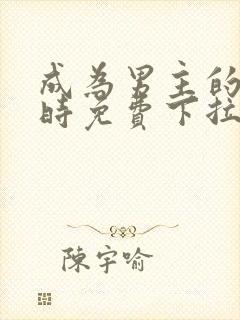 成為男主的
時免費下拉
陳宇喻